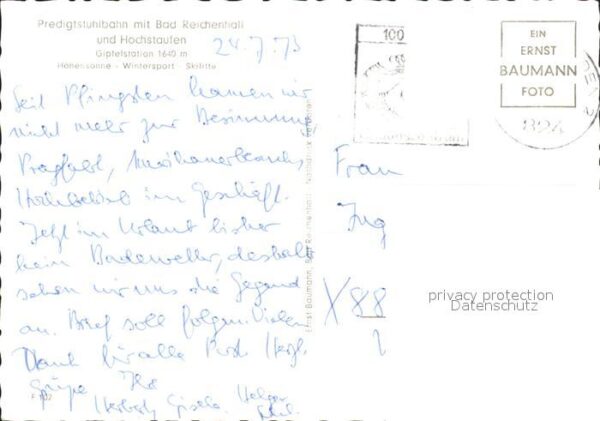 Predigtstuhlbahn mit Bad Reichenhall
und Hochstaufen
Gipfelstation 1640 m
Höhensonne - Wintersport - Skilifte
24.7.73
Seit Pfingsten kamen wir
nicht mehr zur Besinnung
Hochbetrieb im Geschäft.
Jetzt im Urlaub bisher
kein Badewetter, deshalb
sehen wir uns die Gegend
an. Brief soll folgen. Vielen
Dank für alle Post. Herzl.
Grüße Ihre
Herbert, Gisela, Holger
F 102
Ernst Baumann, Bad Reichenhall
100
EIN
ERNST
BAUMANN
FOTO
Frau
Ing
X 88
privacy protection
Datenschutz